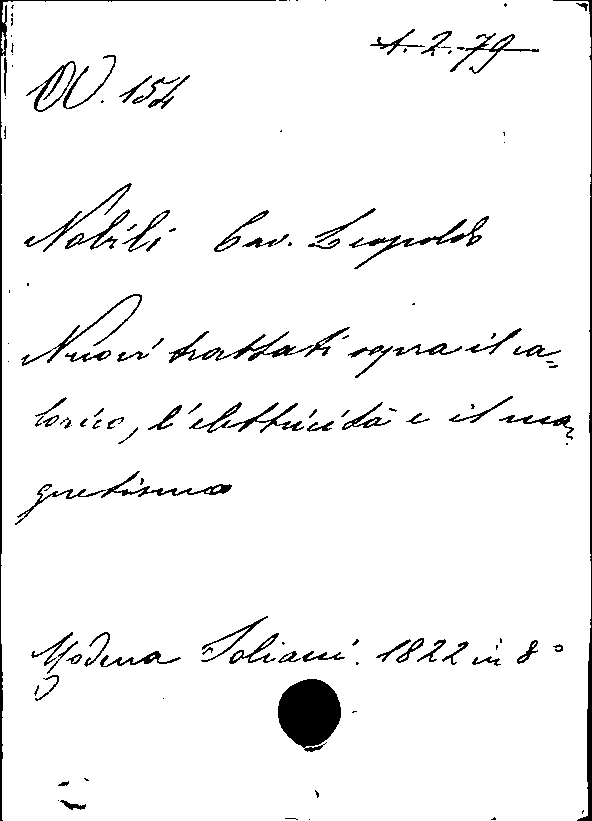 A. 2. 79
OV. 154
Nobili Cav. Leopoldo
Nuovi trattati sopra il ca=
lorico, l'elettricità e il ma=
gnetismo
Modena Soliani. 1822 in 8°